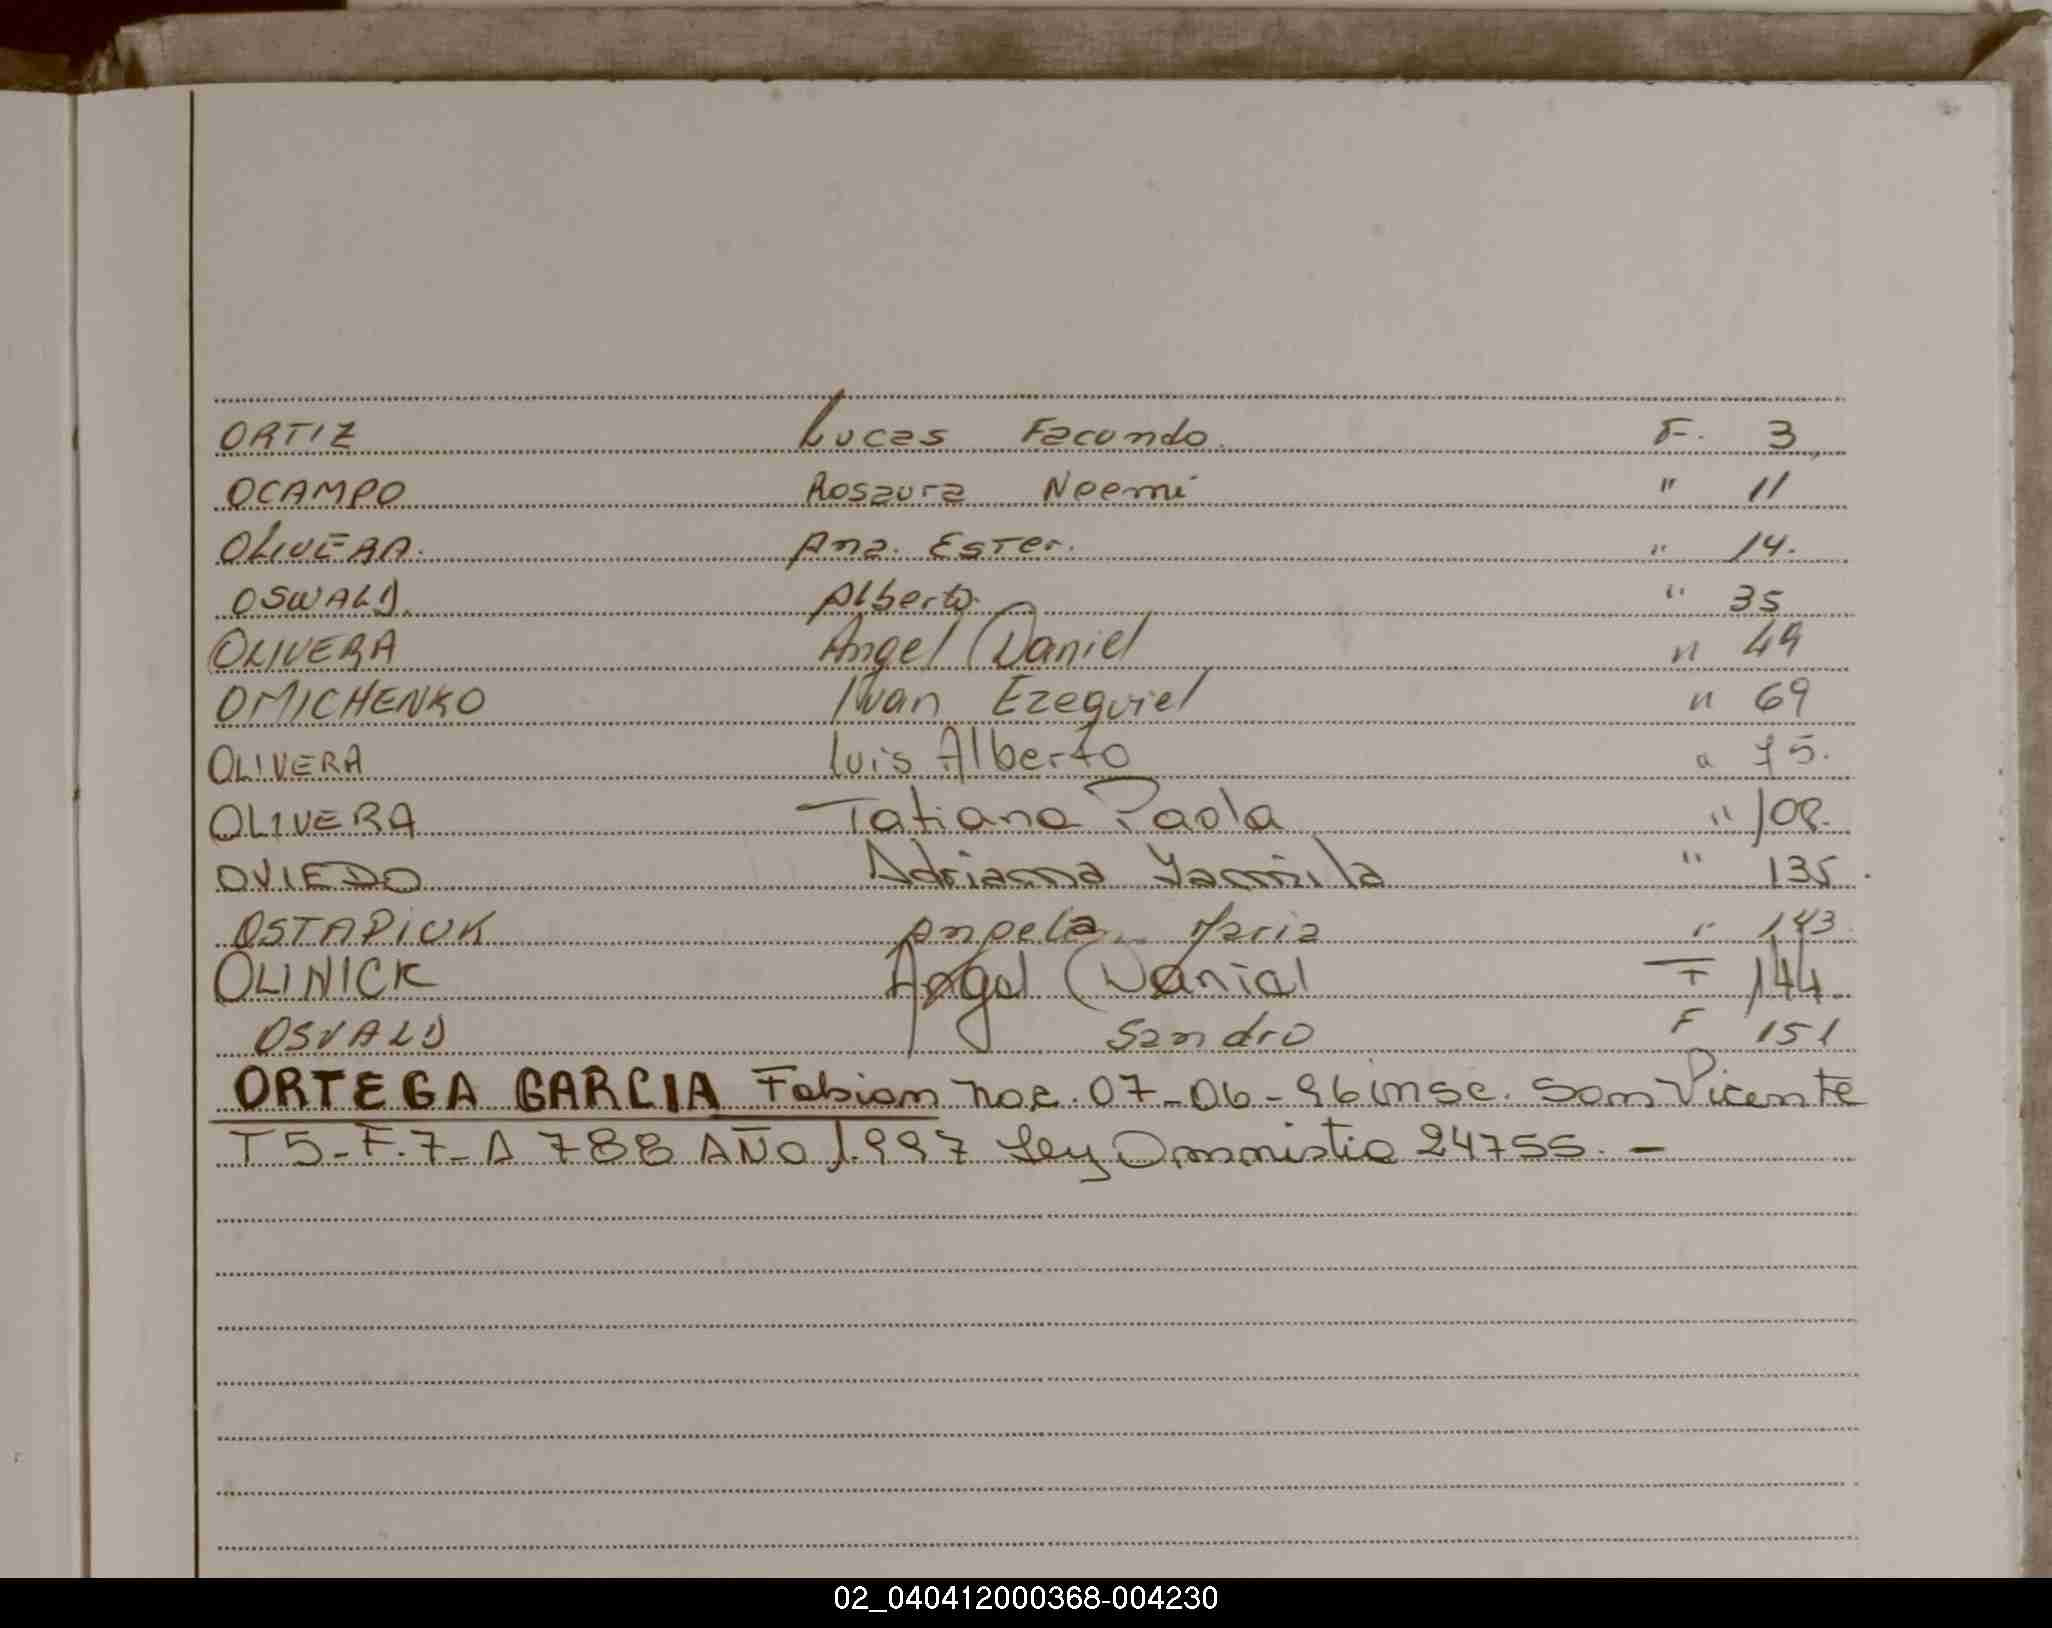 ORTIZ Lucas Facundo. F. 3
OCAMPO Rosaura Noemi " 11
OLIVERA. Ana. Ester. " 14.
OSWALD. Alberto. " 35
OLIVERA Angel Daniel " 49
OMICHENKO Ivan Ezequiel " 69
OLIVERA Luis Alberto " 75.
OLIVERA Tatiana Paola " 108.
OVIEDO Adriana Yamila " 135.
OSTAPIUK Angela Maria " 143
OLINICK Angel Daniel F 144
OSVALD Sandro F 151
ORTEGA GARCIA Fabian nac. 07-06-96 insc. San Vicente
T5-F.7-A 788 AÑO 1.997 Ley Amnistia 24755.-
02_040412000368-004230